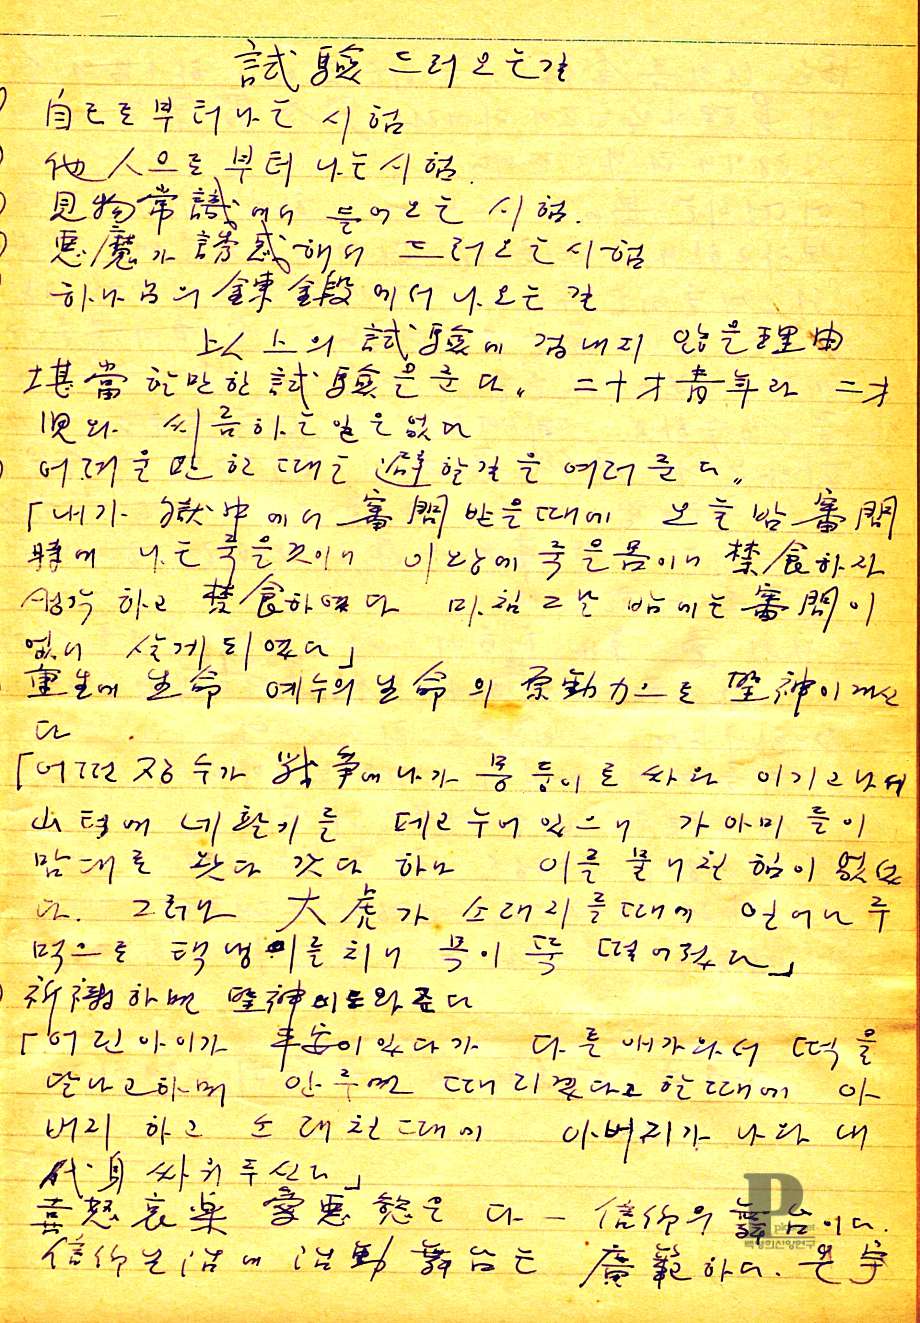 試驗 드러오는길
自己로부터 나는 시험
他人으로 부터 나는 시험.
見物常識에서 들어오는 시험.
惡魔가 誘惑해서 드러오는 시험
하나님의 鍊鍛에서 나오는 길
以上의 試驗에 겁내지 않을 理由
堪當할만한 試驗을 준다. 二十才靑年라 二才
児와 씨름하는 일은 없다
어려울만 한 때는 避할길을 여러준다.
「내가 獄中에서 審問받을때에 오늘밤 審問
時에 나는 죽을것이니 이왕에 죽을몸이니 禁食하자
생각 하고 禁食하였다 마침 그날 밤에는 審問이
없어 살게 되였다」
重生에 生命 예수의 生命의 原動力으로 聖神이 계신
다
「어떤 장수가 戰爭에 나가 몽둥이로 싸와 이기고 나서
山턱에 네활기를 떼고 누어있으니 가아미들이
맘대로 왓다 갓다 하나 이를 물니칠 힘이 없었
다. 그러나 大虎가 소래리를때에 일어나 주
먹으로 택냉이를 치니 목이 뚝 떨어졌다」
祈禱하면 聖神이 도와준다
「어린아이가 平安이 있다가 다른애가 와서 떡을
달나고하며 안주면 때리겠다고 할때에 아
버지 하고 소래칠때에 아버지가 나와 내
代身 싸워주신다」
喜怒哀樂 愛惡慾은 다 - 信仰의 舞台이다.
信仰生活에 活動舞台는 廣範하다. 온宇